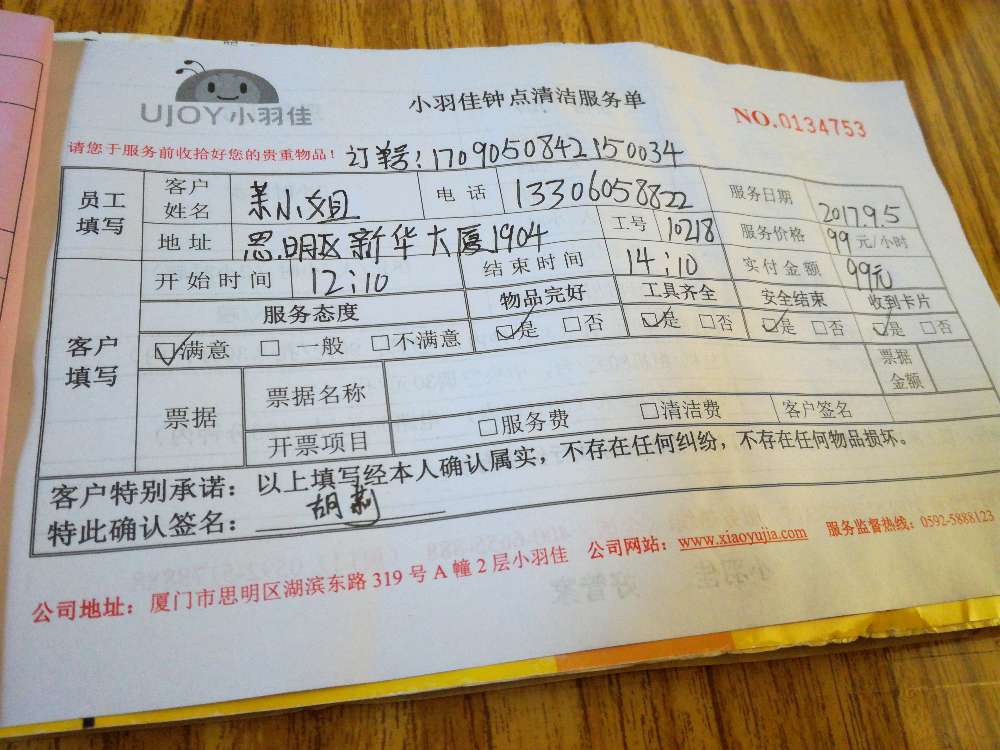 UJOY小羽佳
小羽佳钟点清洁服务单
NO.0134753
请您于服务前收拾好您的贵重物品！ 订单号：1709050842150034
员工填写 客户姓名 小姐 电话 13306058822 服务日期 2017.9.5
地址 思明区新华大厦1904 工号 10218 服务价格 99 元/小时
开始时间 12:10 结束时间 14:10 实付金额 99元
客户填写 服务态度 物品完好 工具齐全 安全结束 收到卡片
☑满意 □一般 □不满意 ☑是 □否 ☑是 □否 ☑是 □否 ☑是 □否
票据 票据名称 票据金额
开票项目 □服务费 □清洁费 客户签名
客户特别承诺：以上填写经本人确认属实，不存在任何纠纷，不存在任何物品损坏。
特此确认签名：胡莉
公司地址：厦门市思明区湖滨东路 319 号 A 幢 2 层小羽佳 公司网站：www.xiaoyujia.com 服务监督热线：0592-5888123